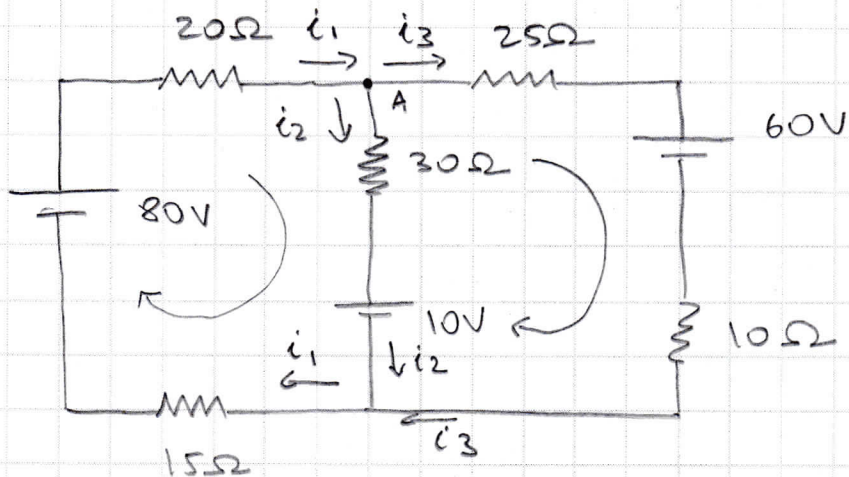 20Ω i1 i3 25Ω
A
i2
60V
30Ω
80V
10V
10Ω
i1
i2
i3
15Ω